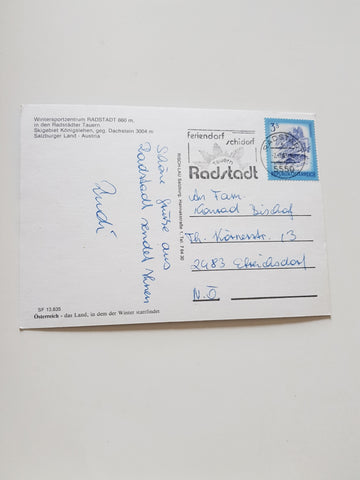 Wintersportzentrum RADSTADT 860 m,
in den Radstädter Tauern.
Skigebiet Königslehen, geg. Dachstein 3004 m
Salzburger Land - Austria
Schöne Grüße aus
Radstadt sendet Ihnen
Rudi
SF 13.635
Österreich - das Land, in dem der Winter stattfindet
RISCH-LAU Salzburg
feriendorf
schidorf
Tauern
Radstadt
3 S
5550
An Fam.
Konrad Bischof
Th. Körnerstr. 13
2483 Ebreichsdorf
N.Ö